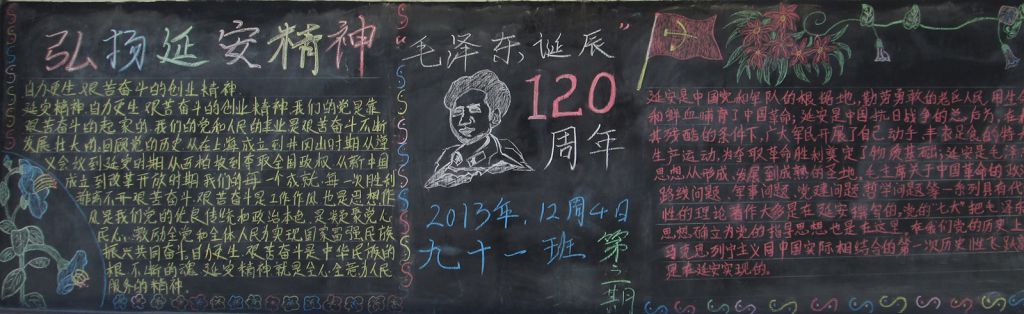 弘扬延安精神
自力更生艰苦奋斗的创业精神.
延安精神自力更生艰苦奋斗的创业精神.我们的党是靠
艰苦奋斗的起家的,我们的党和人民的事业是艰苦奋斗不断
发展壮大的.回顾党的历史从在上海成立到井冈山时期从遵
义会议到延安时期从西柏坡到夺取全国政权,从新中国
成立到改革开放时期,我们的每一个成就,每一次胜利
都离不开艰苦奋斗.艰苦奋斗是工作作风也是思想作
风是我们党的优良传统和政治本色,是凝聚党人
民人心,激励全党和全体人民为实现国家富强民族
振兴共同奋斗.自力更生艰苦奋斗是中华民族的
根不断
延安精神就是全心全意为人民
服务的精神.
“毛泽东诞辰”
120
周年
2013年,12周4日
九十一班
第二期
延安是中国党和军队的根据地,勤劳勇敢的老区人民,用生
和鲜血哺育了中国革命;延安是中国抗日战争的总后方,在
其残酷的条件下,广大军民开展了自己动手,丰衣足食的
生产运动,为夺取革命胜利奠定了物质基础;延安是毛泽
思想从形成,发展到成熟的圣地,毛主席关于中国革命的
路线问题,军事问题,党建问题,哲学问题等一系列具有代
性的理论著作大多是在延安撰写的,党的“七大”把毛泽
思想确立为党的指导思想,也是在这里.在我们党的历史上
马克思,列宁主义同中国实际相结合的第一次历史性飞跃
是在延安实现的.